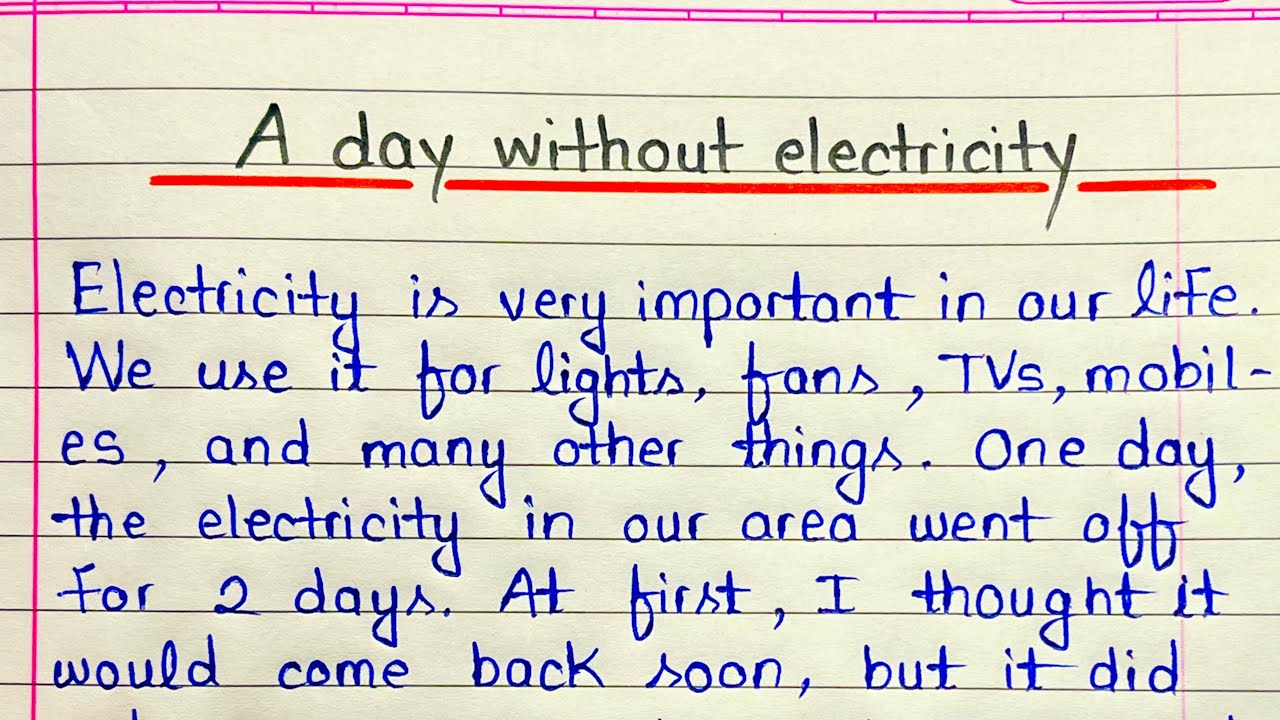 A day without electricity
Electricity is very important in our life.
We use it for lights, fans, TVs, mobil-
es, and many other things. One day,
the electricity in our area went off
for 2 days. At first, I thought it
would come back soon, but it did